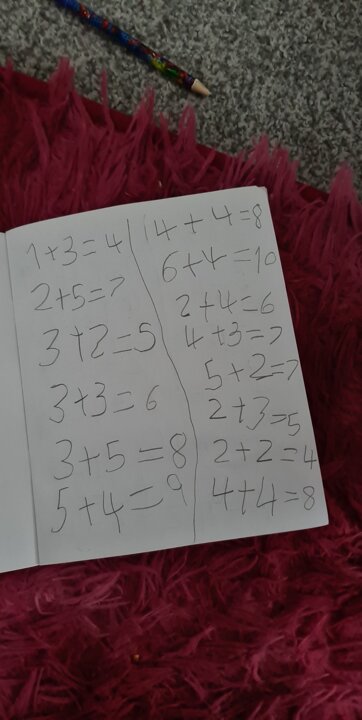 1+3=4
2+5=7
3+2=5
3+3=6
3+5=8
5+4=9
4+4=8
6+4=10
2+4=6
4+3=7
5+2=7
2+3=5
2+2=4
4+4=8